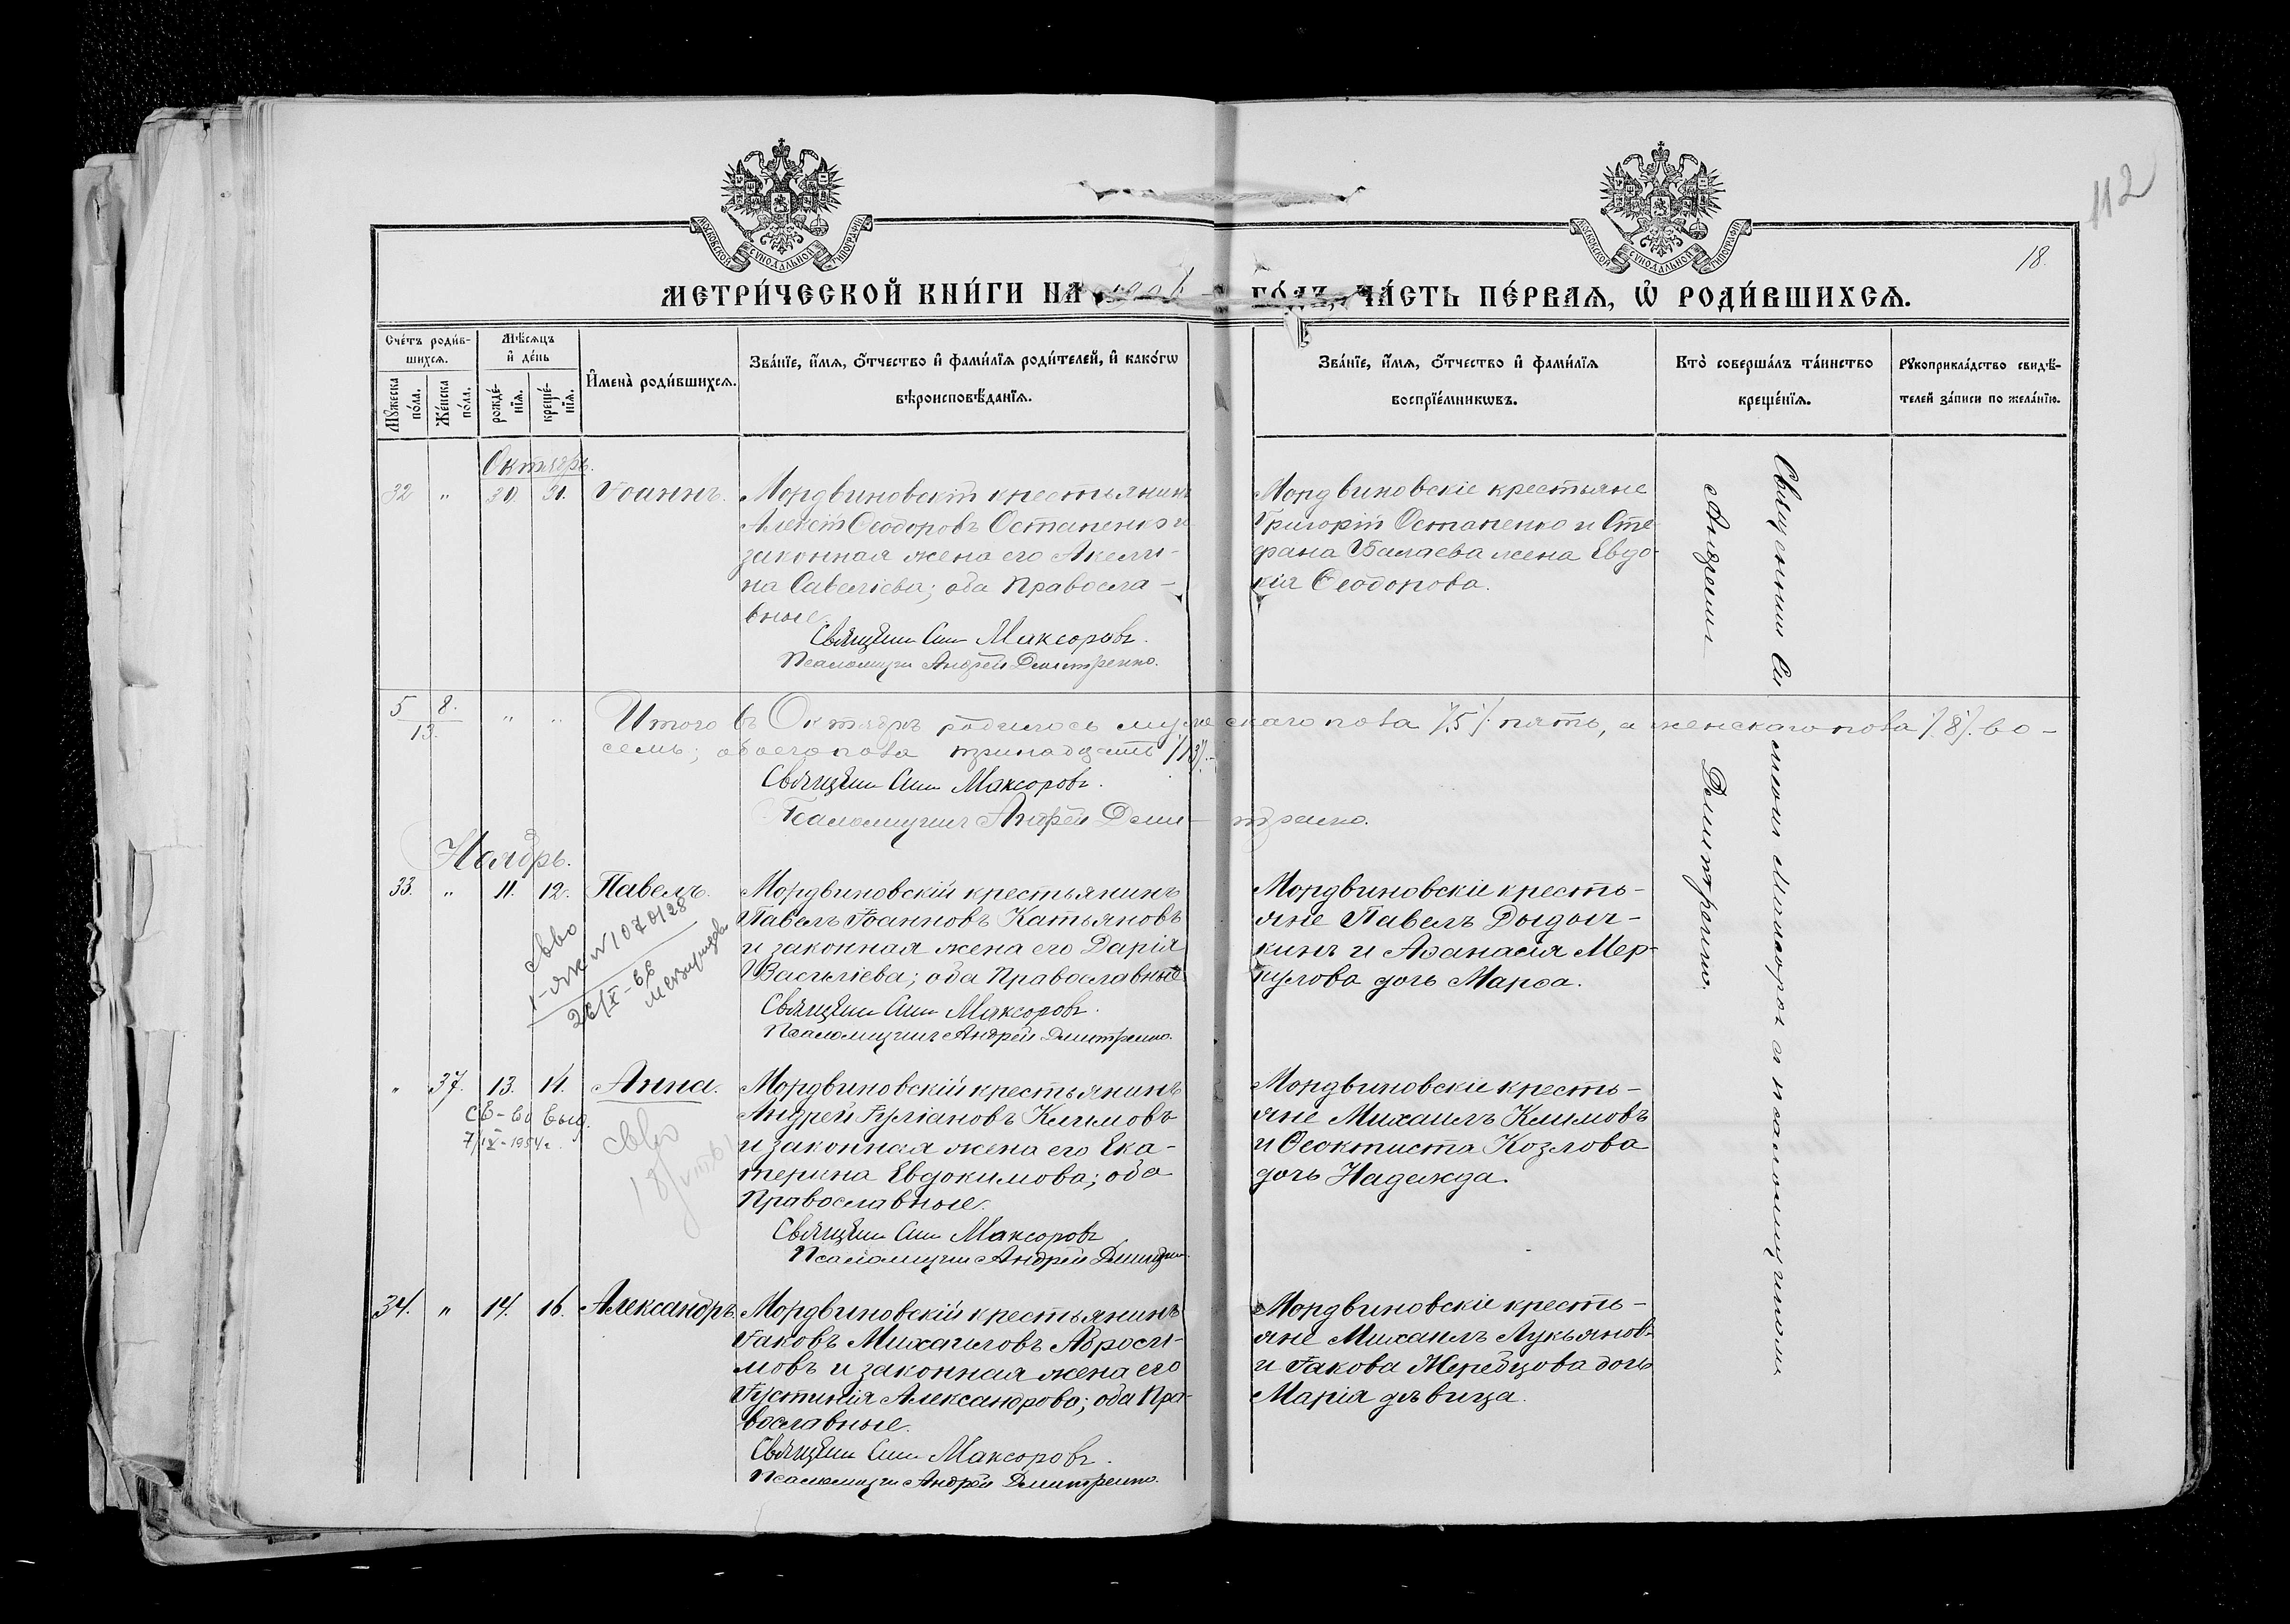 112
18.
МОСКОВСКОЙ СѴНОДАЛЬНОЙ ТИПОГРАФІИ
МОСКОВСКОЙ СѴНОДАЛЬНОЙ ТИПОГРАФІИ
МЕТРИ́ЧЕСКОЙ КНИ́ГИ НА ГО́ДЪ, ЧА́СТЬ ПЕ́РВАѦ, Ѡ҆ РОДИ́ВШИХСѦ.
Сче́тъ роди́в-
шихсѧ.
Мꙋ́жеска по́ла.
Же́нска по́ла.
Мѣ́сѧцъ и҆ де́нь
рожде́-нїѧ.
креще́-нїѧ.
И҆мена̀ роди́вшихсѧ.
Зва́нїе, и҆́мѧ, ѻ҆́тчество и҆ фами́лїѧ роди́телей, и҆ како́гѡ
вѣроисповѣ́данїѧ.
Зва́нїе, и҆́мѧ, ѻ҆́тчество и҆ фами́лїѧ
воспрїе́мникѡвъ.
Кто̀ соверша́лъ та́инство
креще́нїѧ.
Рꙋкоприкла́дство свидѣ́-
телей за́писи по жела́нїю.
Октябрь.
32 " 30. 31. Іоаннъ. Мордвиновскій крестьянинъ
Алексѣй Ѳеодоровъ Остапенко и
законная жена его Акели-
на Савеліева; оба Правосла-
вные.
Священ. Сим. Максоровъ.
Псаломщик Андрей Дмитренко.
Мордвиновскіе крестьяне
Григорій Остапенко и Сте-
фана Балаева жена Евдо-
кія Ѳеодорова.
5 8. " " Итого въ Октябрѣ родилось мужескаго пола /5/ пять, а женскаго пола /8/. во-
13. семь; обоего пола тринадцать /13/.
Священ. Сим. Максоровъ.
Псаломщикъ Андрей Дмитренко.
Ноябрь.
33. " 11. 12. Павелъ. Мордвиновскій крестьянинъ
Павелъ Іоанновъ Катьяновъ
и законная жена его Дарія
Василіева; оба Православные.
Священ. Сим. Максоровъ.
Псаломщикъ Андрей Дмитренко.
Мордвиновскіе кресть-
яне Павелъ Дыдыч-
кинъ и Аѳанасія Мер-
кулова дочь Марѳа.
сво
I-ЯК №1070128
26/IX-68
" 37. 13. 14. Анна. Мордвиновскій крестьянинъ
Андрей Іуліановъ Климовъ
и законная жена его Ека-
терина Евдокимова; оба
Православные.
Священ. Сим. Максоровъ
Псаломщик Андрей Дмитрен.
Мордвиновскіе кресть-
яне Михаилъ Климовъ
и Ѳеоктиста Козлова
дочь Надежда.
св-во выд.
7/IX-1954 г.
сво
34. " 14. 16. Александръ. Мордвиновскій крестьянинъ
Іаковъ Михаиловъ Аброси-
мовъ и законная жена его
Іустинія Александрова; оба Пра-
вославные.
Священ. Сим. Максоровъ.
Псаломщик Андрей Дмитренко.
Мордвиновскіе кресть-
яне Михаилъ Лукьяновъ
и Іакова Жеребцова дочь
Марія дѣвица.
Священникъ Симеонъ Максоровъ съ псаломщикомъ
Андреемъ Дмитренко.